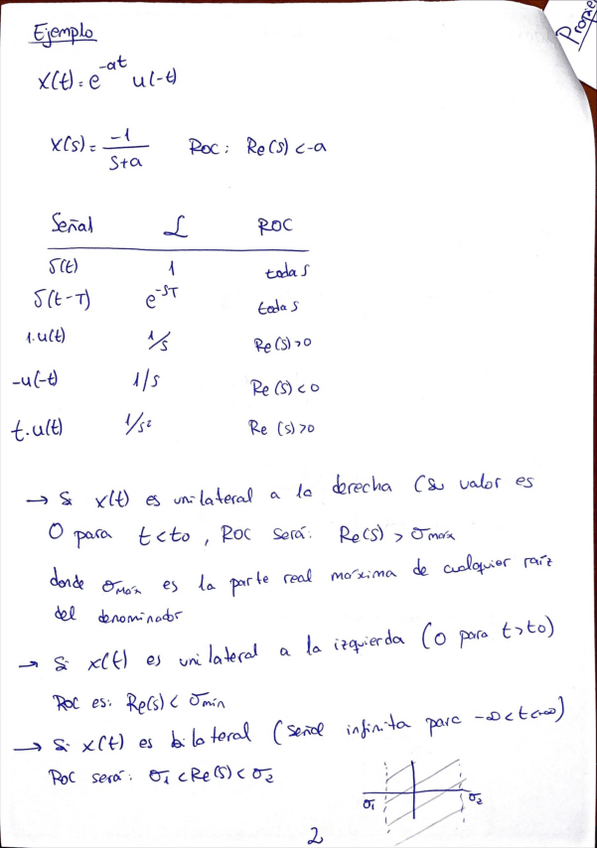 Propie
Ejemplo
x(t)=e^-at u(-t)
X(s)= -1/(s+a) ROC: Re(s) <-a
Señal ℒ ROC
δ(t) 1 toda s
δ(t-T) e^-sT toda s
1.u(t) 1/s Re(s)>0
-u(-t) 1/s Re(s)<0
t.u(t) 1/s² Re(s)>0
→ Si x(t) es unilateral a la derecha (su valor es
0 para t<to, ROC será: Re(s) > σmáx
donde σmáx es la parte real máxima de cualquier raíz
del denominador
→ Si x(t) es unilateral a la izquierda (0 para t>to)
ROC es: Re(s) < σmín
→ Si x(t) es bilateral (señal infinita para -∞<t<∞)
ROC será: σ1 <Re(s)< σ2
σ1 σ2
2